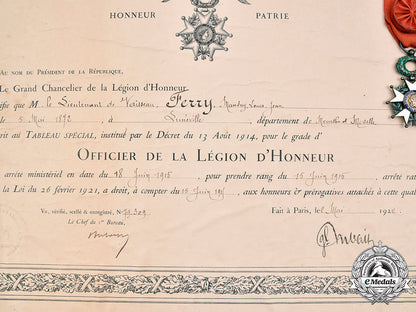 HONNEUR PATRIE
AU NOM DU PRÉSIDENT DE LA RÉPUBLIQUE,
Le Grand Chancelier de la Légion d'Honneur
ifie que M. le Lieutenant de Vaisseau, Ferry, Louis Jean
5 Mai 1872, à Lunéville, département de Meurthe et Moselle
rit au TABLEAU SPÉCIAL, institué par le Décret du 13 Août 1914, pour le grade d'
OFFICIER DE LA LÉGION D'HONNEUR
arrêté ministériel en date du 18 Juin 1915, pour prendre rang du 15 Juin 1915, arrêté rati
la Loi du 26 février 1921, a droit, à compter du 15 Juin, aux honneurs & prérogatives attachés à cette qual
Vu, vérifié, scellé & enregistré, N° 79.309
Fait à Paris, le Mai 192
Le Chef du 1er Bureau,
eMedals